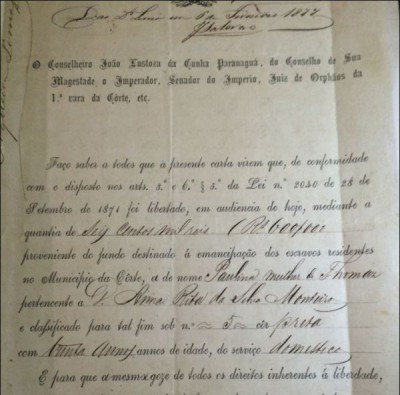 de Fevereiro 1877
O Conselheiro João Lustoza da Cunha Paranaguá, do Conselho de Sua
Magestade o Imperador, Senador do Imperio, Juiz de Orphãos da
1.ª vara da Côrte, etc.
Faço saber a todos que a presente carta virem que, de conformidade
com o disposto nos arts. 3.º e 6.º § 3.º da Lei n.º 2040 de 28 de
Setembro de 1871 foi libertado, em audiencia de hoje, mediante a
quantia de Seis centos mil reis (Rs 600$000
proveniente do fundo destinado à emancipação dos escravos residentes
no Municipio da Côrte, a de nome Paulina mulher de Thomaz
pertencente a D. Anna Rita da Silva Monteiro
e classificado para tal fim sob n.º 5 côr preta
com trinta annos annos de idade, do serviço domestico
E para que a mesma goze de todos os direitos inherentes á liberdade,